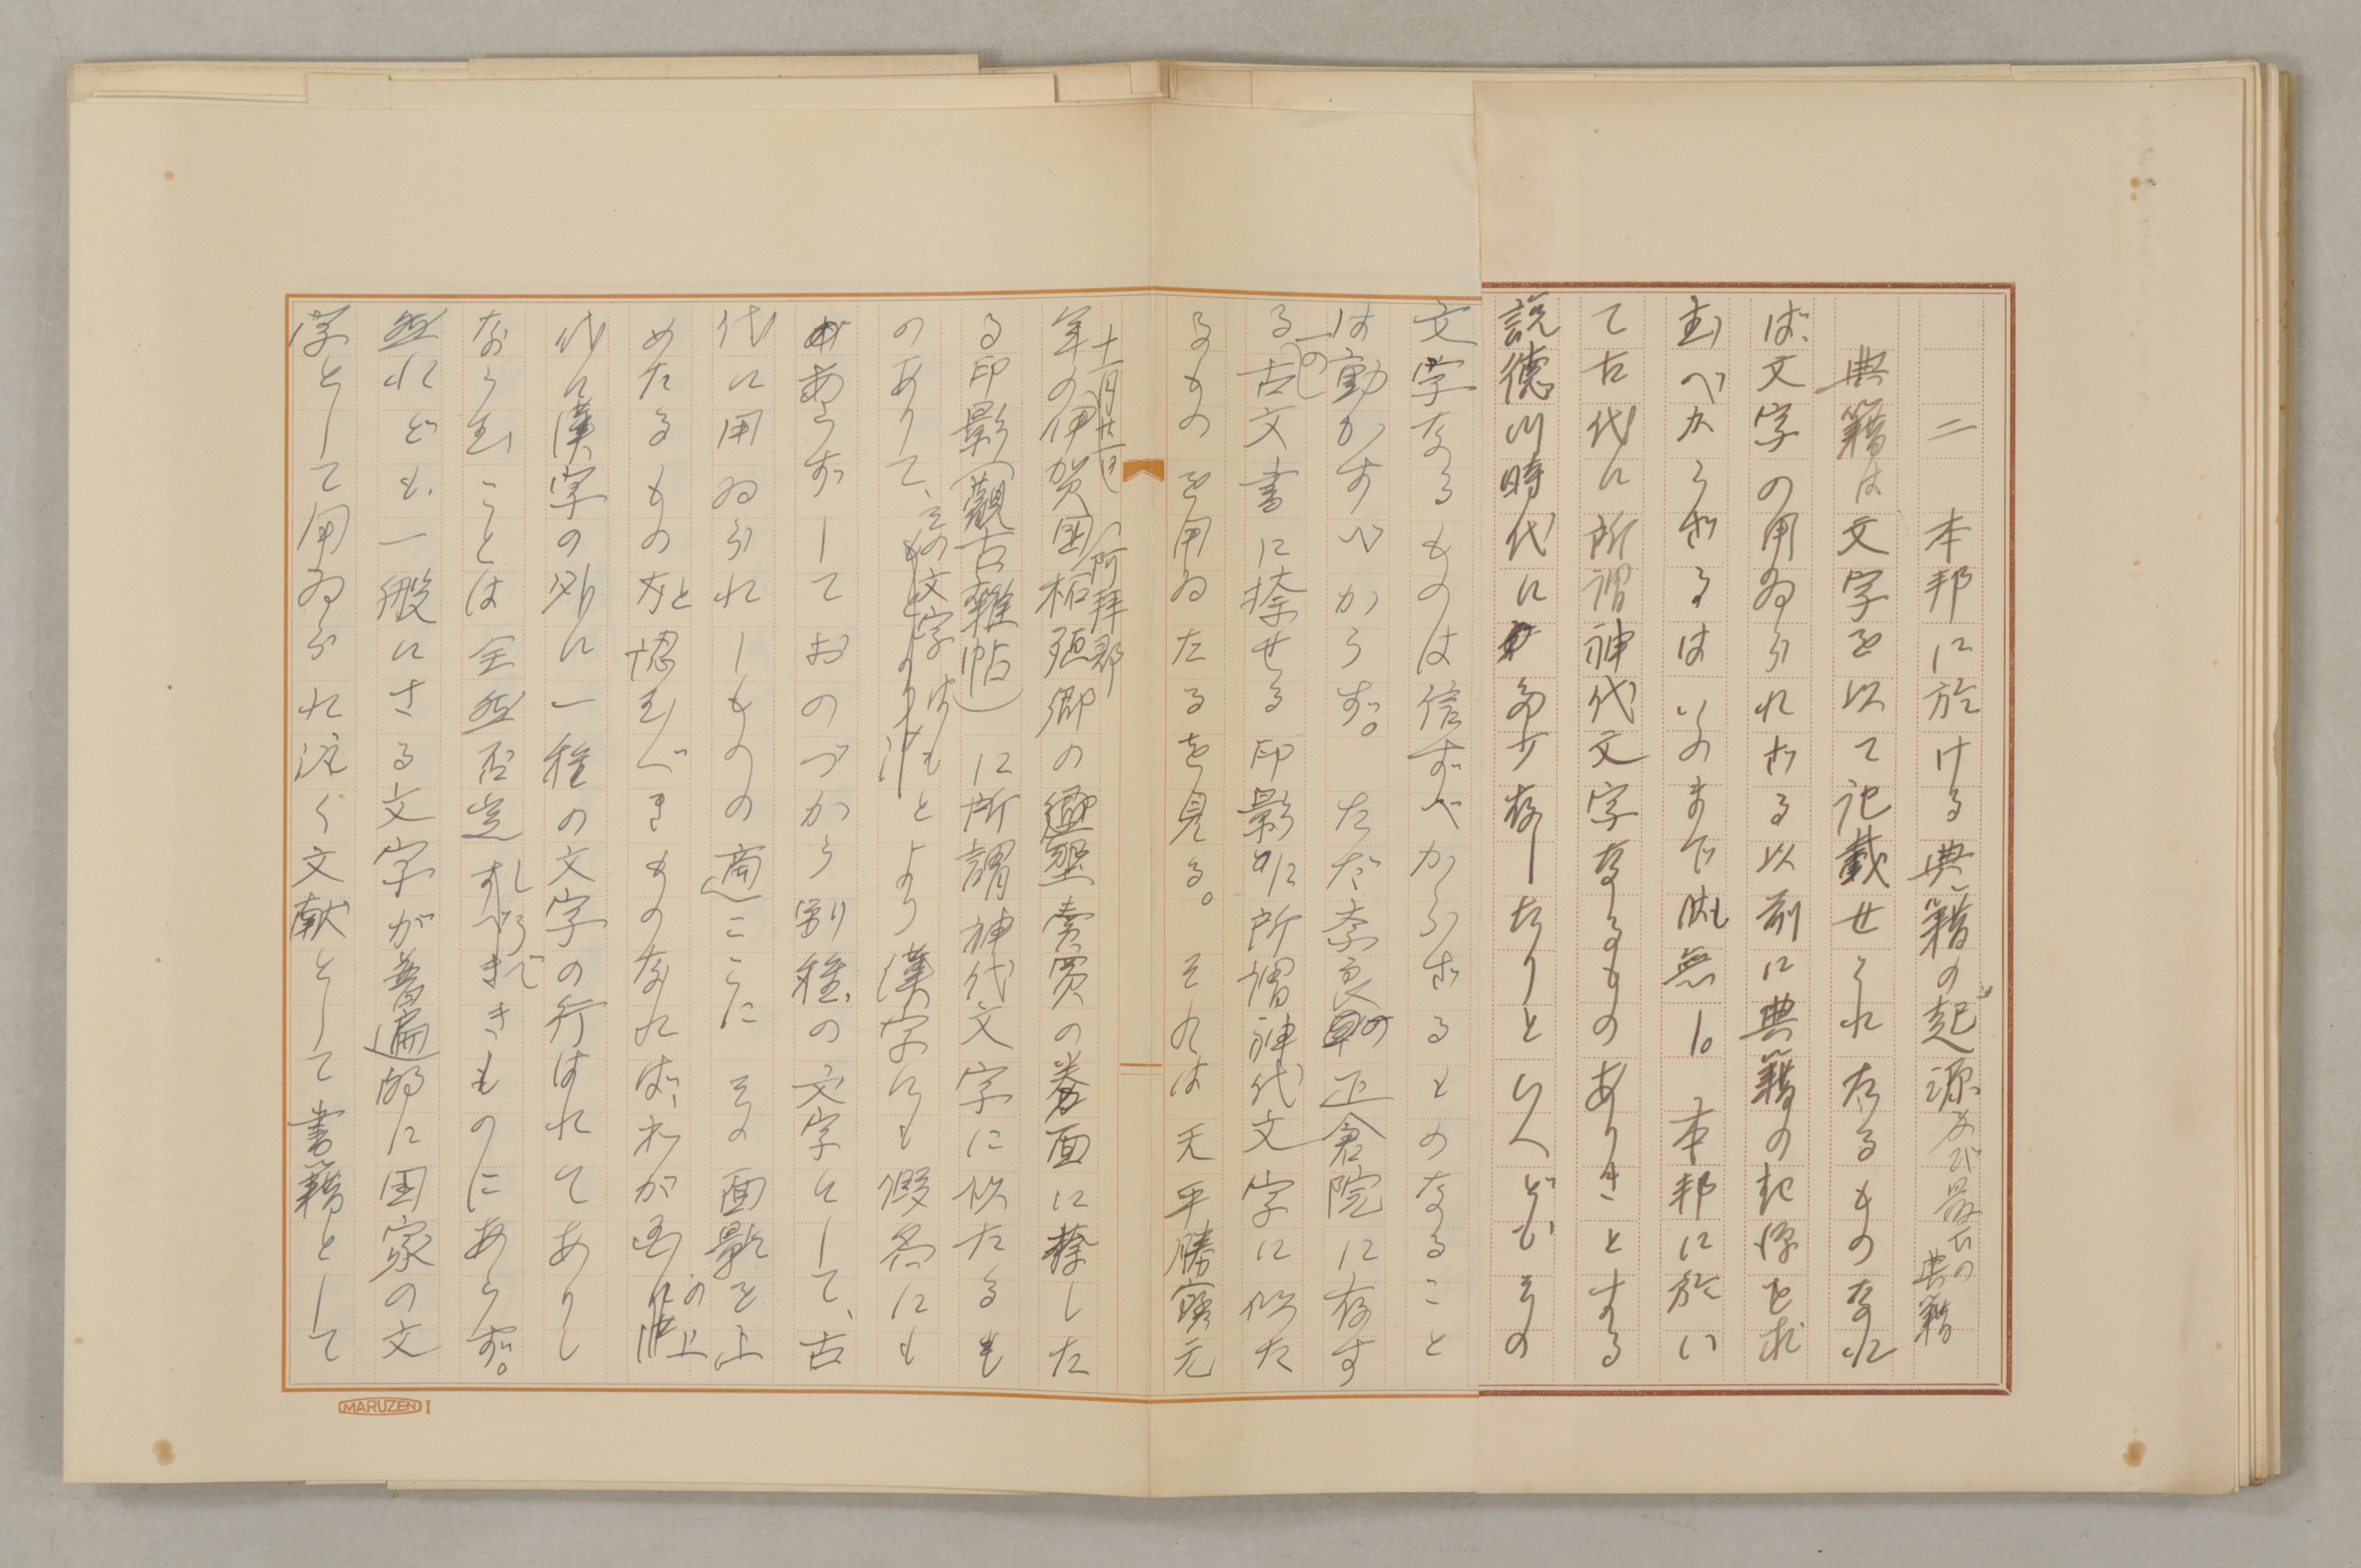 二 本邦に於ける典籍の起源及び最古の典籍
典籍は文字を以て記載せられたるものなれ
ば、文字の用ゐられざる以前に典籍の起源を求
むべからざるはいふまでも無し。本邦に於い
て古代に所謂神代文字なるものありきとする
説徳川時代に多少存したりといへどもその
文字なるものは信ずべからざるものなること
は動かすべからず。ただ奈良の正倉院に存す
る一の古文書に捺せる印影に所謂神代文字に似た
るものを用ゐたるを見る。それは天平勝宝元
年十一月廿一日の伊賀国(阿拝郡)柘殖郷の墾田売買の券面に捺した
る印影(観古雑帖)に所謂神代文字に似たるも
のありて、その文字はもとより漢字にも仮名にも
あらずしておのづから別種の文字として、古
代に用ゐられしものの適こゝにその面影を止
めたるものと認むべきものなれば、わが国の上
代に漢字の外に一種の文字の行はれてありし
ならむことは全然否定しうべきものにあらず。
然れども、一般にさる文字が普遍的に国家の文
字として用ゐられ汎く文献として書籍として
MARUZEN I